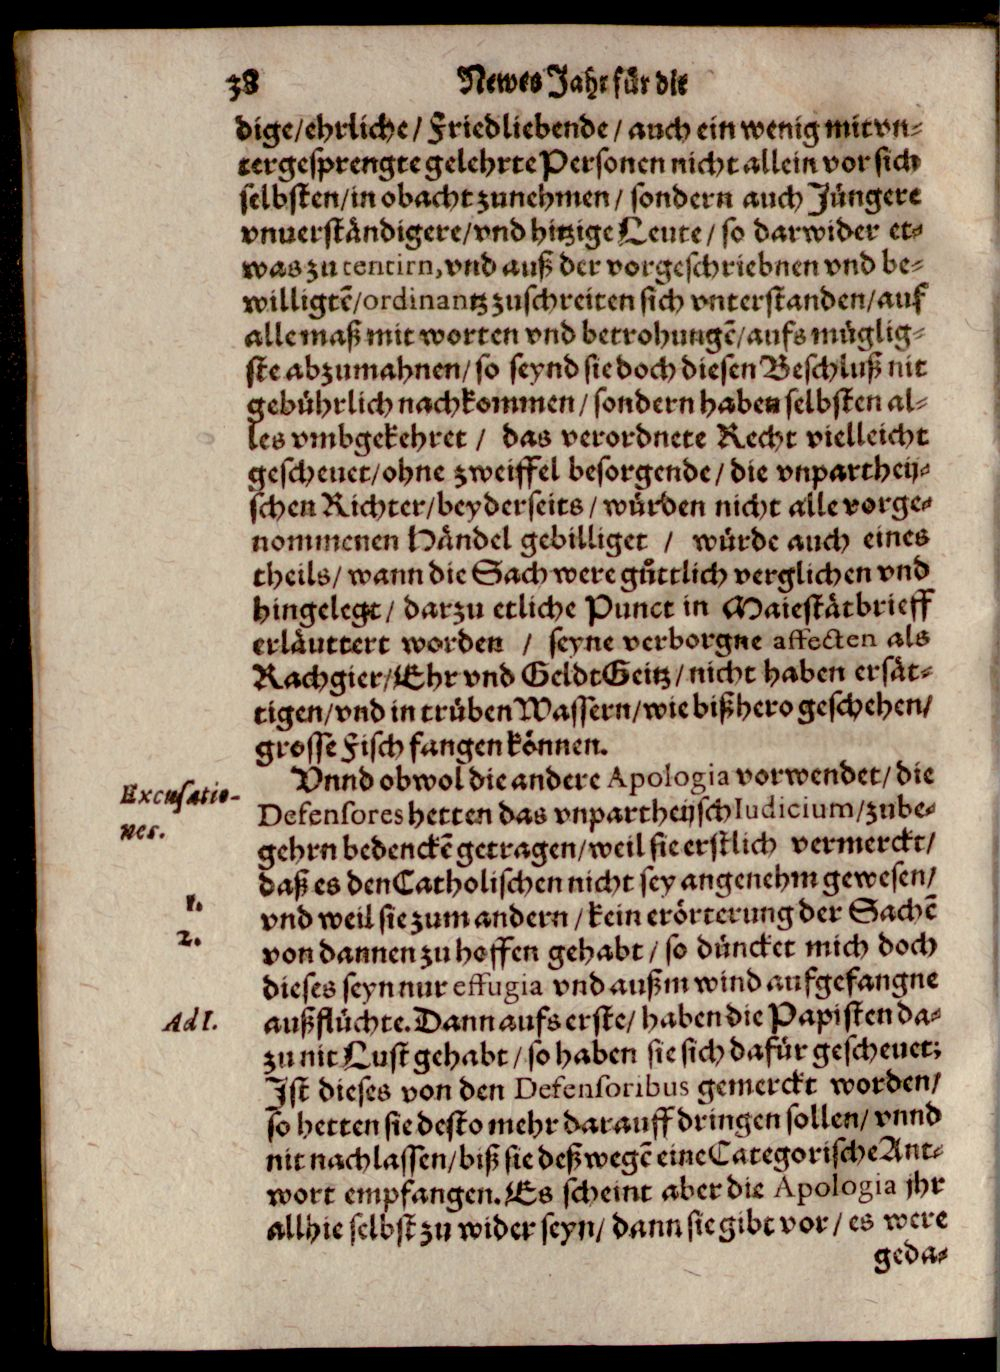 38 Newes Jahr für die
dige/ehrliche/ Friedliebende/ auch ein wenig mit vn-
tergesprengte gelehrte Personen nicht allein vor sich
selbsten/in obacht zunehmen/ sondern auch Jüngere
vnuerständigere/vnd hitzige Leute/ so darwider et-
was zu tentirn, vnd auß der vorgeschriebnen vnd be-
willigtẽ/ordinantz zuschreiten sich vnterstanden/auf
alle maß mit worten vnd betrohungẽ/aufs müglig-
ste abzumahnen/ so seynd sie doch diesen Beschluß nit
gebührlich nachkommen/ sondern haben selbsten al-
les vmbgekehret/ das verordnete Recht vielleicht
geschevet/ohne zweiffel besorgende/ die vnpartheij-
schen Richter/beyderseits/ würden nicht alle vorge-
nommenen Händel gebilliget/ würde auch eines
theils/ wann die Sach were güttlich verglichen vnd
hingelegt/ darzu etliche Punct in Maiestätbrieff
erläuttert worden/ seyne verborgne affecten als
Rachgier/Ehr vnd GeldtGeitz/ nicht haben ersät-
tigen/vnd in trüben Wassern/wie bißhero geschehen/
grosse Fisch fangen können.
Vnnd obwol die andere Apologia vorwendet/ die
Excusatio-
Defensores hetten das vnpartheijsch Iudicium/zube-
nes.
gehrn bedenckẽ getragen/weil sie erstlich vermerckt/
daß es den Catholischen nicht sey angenehm gewesen/
1.
vnd weil sie zum andern/ kein erörterung der Sachẽ
2.
von dannen zu hoffen gehabt/ so düncket mich doch
dieses seyn nur effugia vnd außm wind aufgefangne
Ad 1.
außflüchte. Dann aufs erste/ haben die Papisten da-
zu nit Lust gehabt/ so haben sie sich dafür geschevet;
Ist dieses von den Defensoribus gemerckt worden/
so hetten sie desto mehr darauff dringen sollen/ vnnd
nit nachlassen/biß sie deßwegẽ eine Categorische Ant-
wort empfangen. Es scheint aber die Apologia jhr
allhie selbst zu wider seyn/ dann sie gibt vor/ es were
geda-